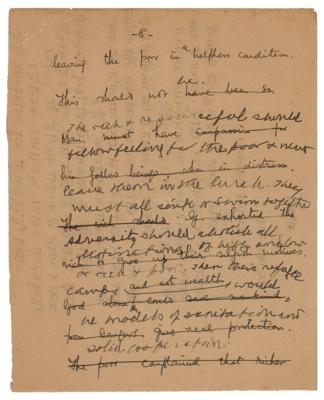 -8-
leaving the poor in a helpless condition.
be.
This should not have been so
The rich & resourceful should
Man must have compassion for
fellow feeling for the poor & never
his fellow beings when in distress.
leave them in the lurch. They
must all sink or swim together
The rich should. G. exhorted the
Adversity should abolish all
distinctions of high and low
rich to give up their selfish motives.
or rich & poor. Then their refugee
camps and not wealth would
God alone could save mankind.
be models of sanitation and
from dangers, give real protection.
solid cooperation.
The poor complained that richer